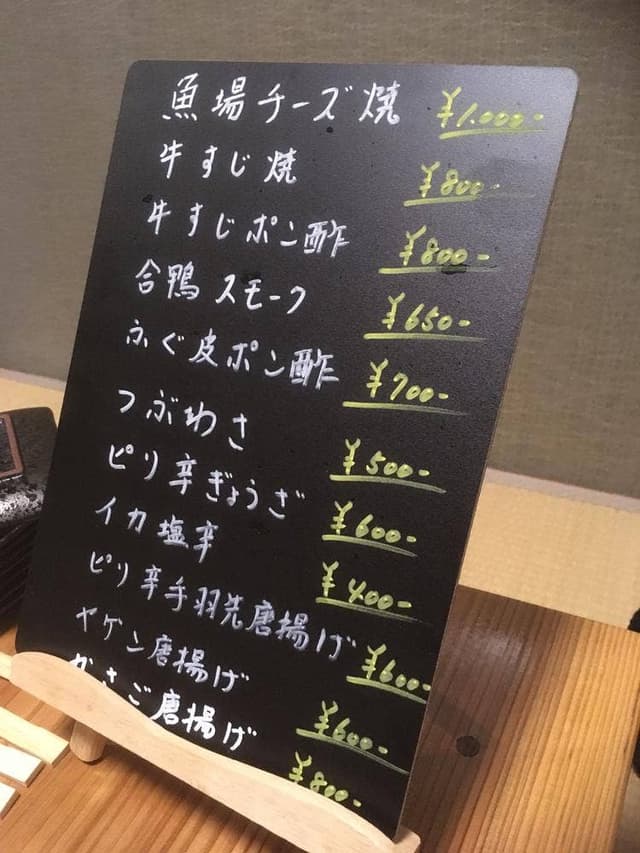 魚場チーズ焼 ¥1.000-
牛すじ焼 ¥800-
牛すじポン酢 ¥800-
合鴨スモーク ¥650-
ふぐ皮ポン酢 ¥700-
つぶわさ ¥500-
ピリ辛ぎょうざ ¥600-
イカ塩辛 ¥400-
ピリ辛手羽先唐揚げ ¥600-
ヤゲン唐揚げ ¥600-
かさご唐揚げ ¥800-